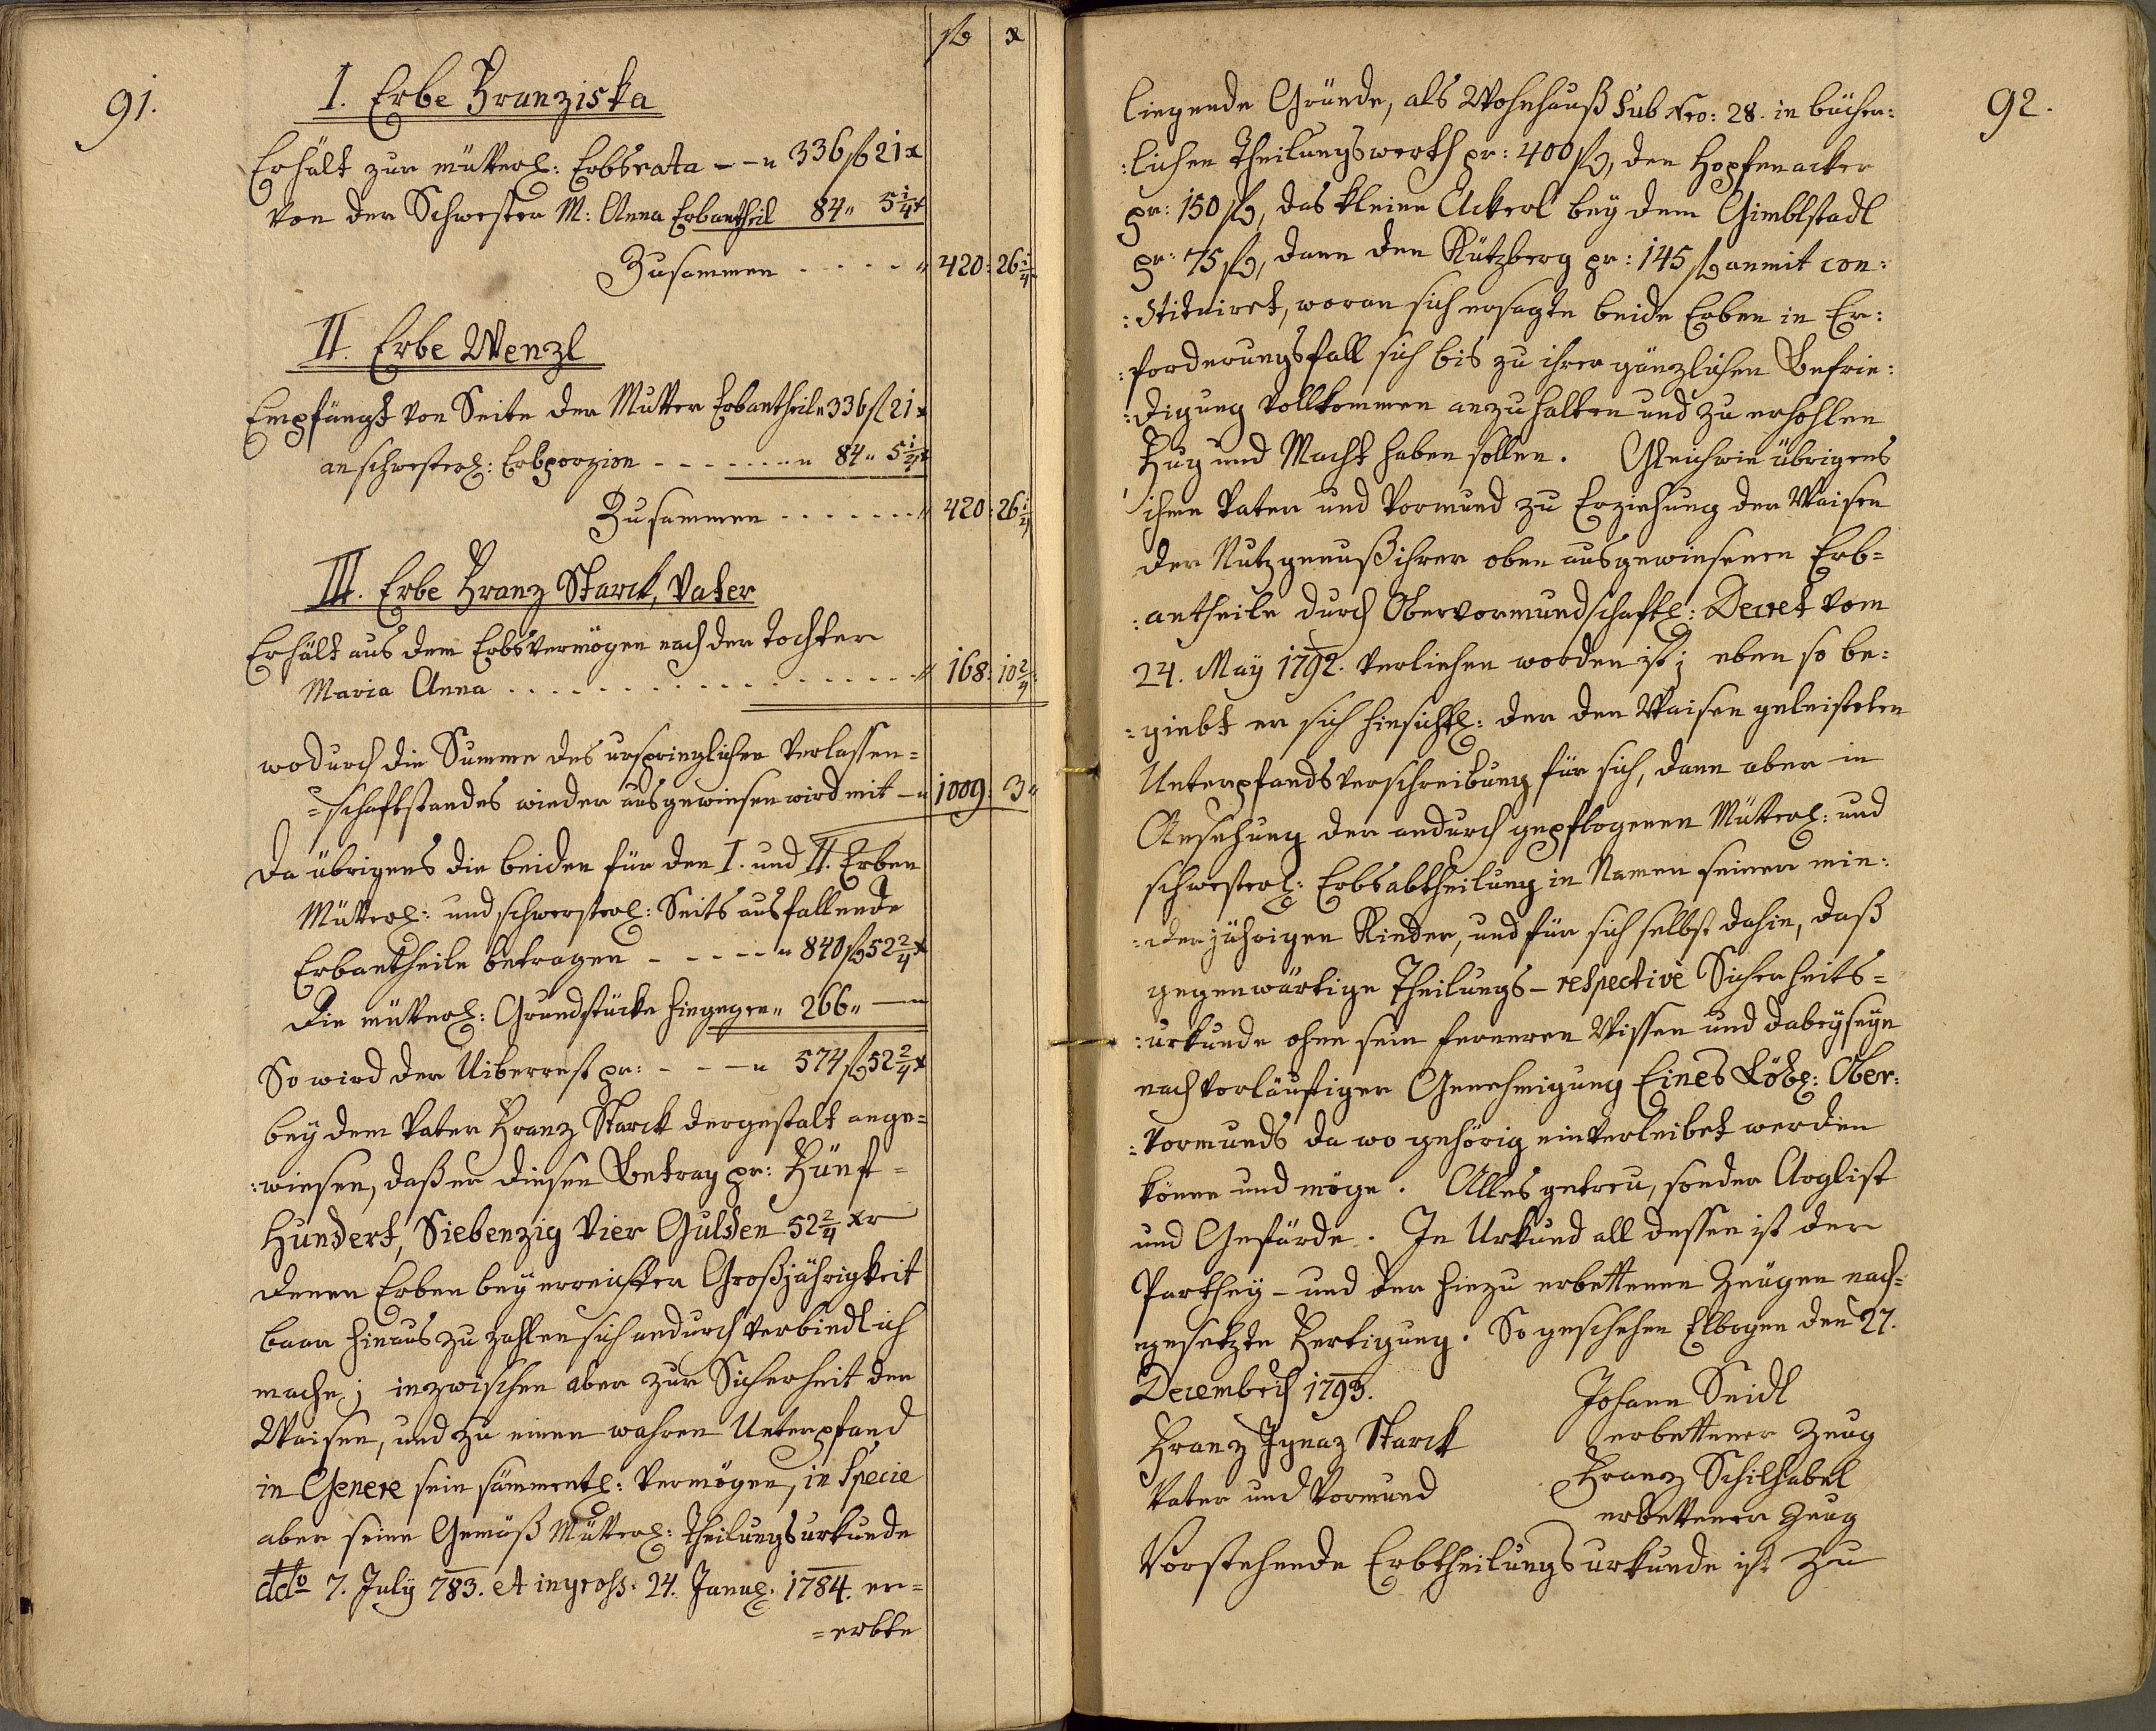 91.
fl x
I. Erbe Franziska
Erhält zur mütterl: Erbsrata - - " 336 fl 21 x
von der Schwester M: Anna Erbantheil 84 " 5 1/4 x
Zusammen - - - - " 420 : 26 1/4
II. Erbe Wenzl
Empfängt von Seite der Mutter Erbantheil " 336 fl 21 x
an schwesterl: Erbporzion - - - - - - " 84 " 5 1/4 x
Zusammen - - - - - - " 420 : 26 1/4
III. Erbe Franz Starck, Vater
Erhält aus dem Erbsvermögen nach der Tochter
Maria Anna - - - - - - - - - - " 168 : 10 2/4
wodurch die Summe des urspringlichen Verlassen=
=schaftstandes wieder ausgewiesen wird mit - " 1009 : 3 "
Da übrigens die beiden für den I. und II. Erben
Mütterl: und schwersterl: Seits ausfallende
Erbantheile betragen - - - - - " 840 fl 52 2/4 x
Die mütterl: Grundstücke hingegen " 266 " —
So wird der Uiberrest pr: - - - " 574 fl 52 2/4 x
bey dem Vater Franz Starck dergestalt ange=
:wiesen, daß er diesen Betrag pr: Fünf=
Hundert, Siebenzig Vier Gulden 52 2/4 xr
denen Erben bey erreichter Großjährigkeit
baar hinaus zu zahlen sich andurch verbindlich
mache; inzwischen aber zur Sicherheit der
Waisen, und zu einen wahren Unterpfand
in Genere sein sämmentl: Vermögen, in Specie
aber seine Gemäß Mütterl: Theilungsurkunde
ddto 7. July 783. et ingross: 24. Januar: 1784. er=
=erbte
92.
liegende Gründe, als Wohnhauß Sub Nro: 28. in bücher:
:lichen Theilungswerth pr: 400 fl, den Hopfenacker
pr: 150 fl, das kleine Ackerl bey dem Gimblstadl
pr: 75 fl, dann den Kützberg pr: 145 fl anmit con:
:stituiret, woran sich ersagte beide Erben in Er:
:forderungsfall sich bis zu ihrer gänzlichen Befrie:
:digung vollkommen anzuhalten und zu erhohlen
Fug und Macht haben sollen. Gleichwie übrigens
ihme Vater und Vormund zu Erziehung der Waisen
der Nutzgenuß ihrer oben ausgewiesenen Erb=
:antheile durch Obervormundschaftl: Decret vom
24. May 1792. verliehen worden ist; eben so be:
:giebt er sich hinsichtl: der den Waisen geleisteten
Unterpfandsverschreibung für sich, dann aber in
Ansehung der andurch gepflogenen Mütterl: und
schwesterl: Erbsabtheilung in Namen seiner min:
:derjährigen Kinder, und für sich selbst dahin, daß
gegenwärtige Theilungs - respective Sicherheits=
:urkunde ohne sein ferneren Wissen und dabeyseyn
nach vorläuftiger Genehmigung Eines Löbl: Ober:
:vormunds da wo gehörig einverleibet werden
könne und möge. Alles getreu, sonder Arglist
und Gefärde. In Urkund all dessen ist der
Parthey - und der hiezu erbettenen Zeugen nach=
gesetzte Fertigung. So geschehen Elbogen den 27.
Decembris 1793.
Johann Seidl
erbettener Zeug
Franz Ignaz Starck
Vater und Vormund
Franz Schilhabel
erbettener Zeug
Vorstehende Erbtheilungsurkunde ist zu